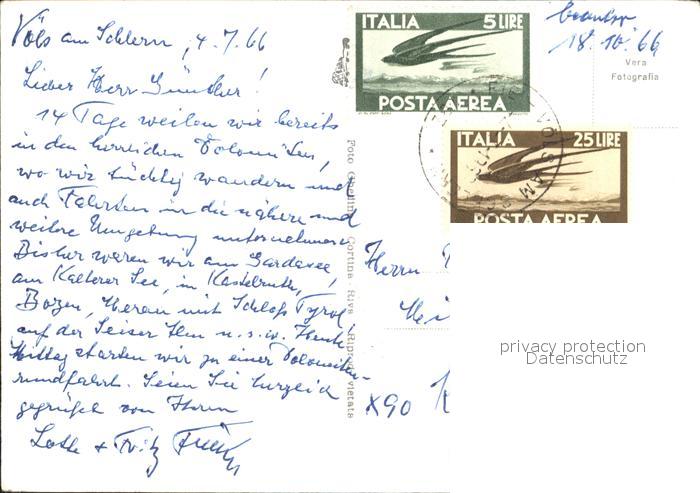 Völs am Schlern, 4.7.66
Lieber Herr Günther!
14 Tage weilen wir bereits
in den herrlichen Dolomiten,
wo wir tüchtig wandern und
auch Fahrten in die nähere und
weitere Umgebung unternehmen.
Bisher waren wir am Gardasee,
am Kalterer See, in Kastelruth,
Bozen, Meran mit Schloß Tyrol,
auf der Seiser Alm u.s.w. Heute
Mittag starten wir zu einer Dolomiten-
rundfahrt. Seien Sie herzlich
gegrüßt von Ihren
Lotte + Fritz
ITALIA 5 LIRE
POSTA AEREA
ITALIA 25 LIRE
POSTA AEREA
18.10.66
Vera
Fotografia
Foto Ghedina Cortina - Riva - Riprod. vietata
Herrn
X90
privacy protection
Datenschutz